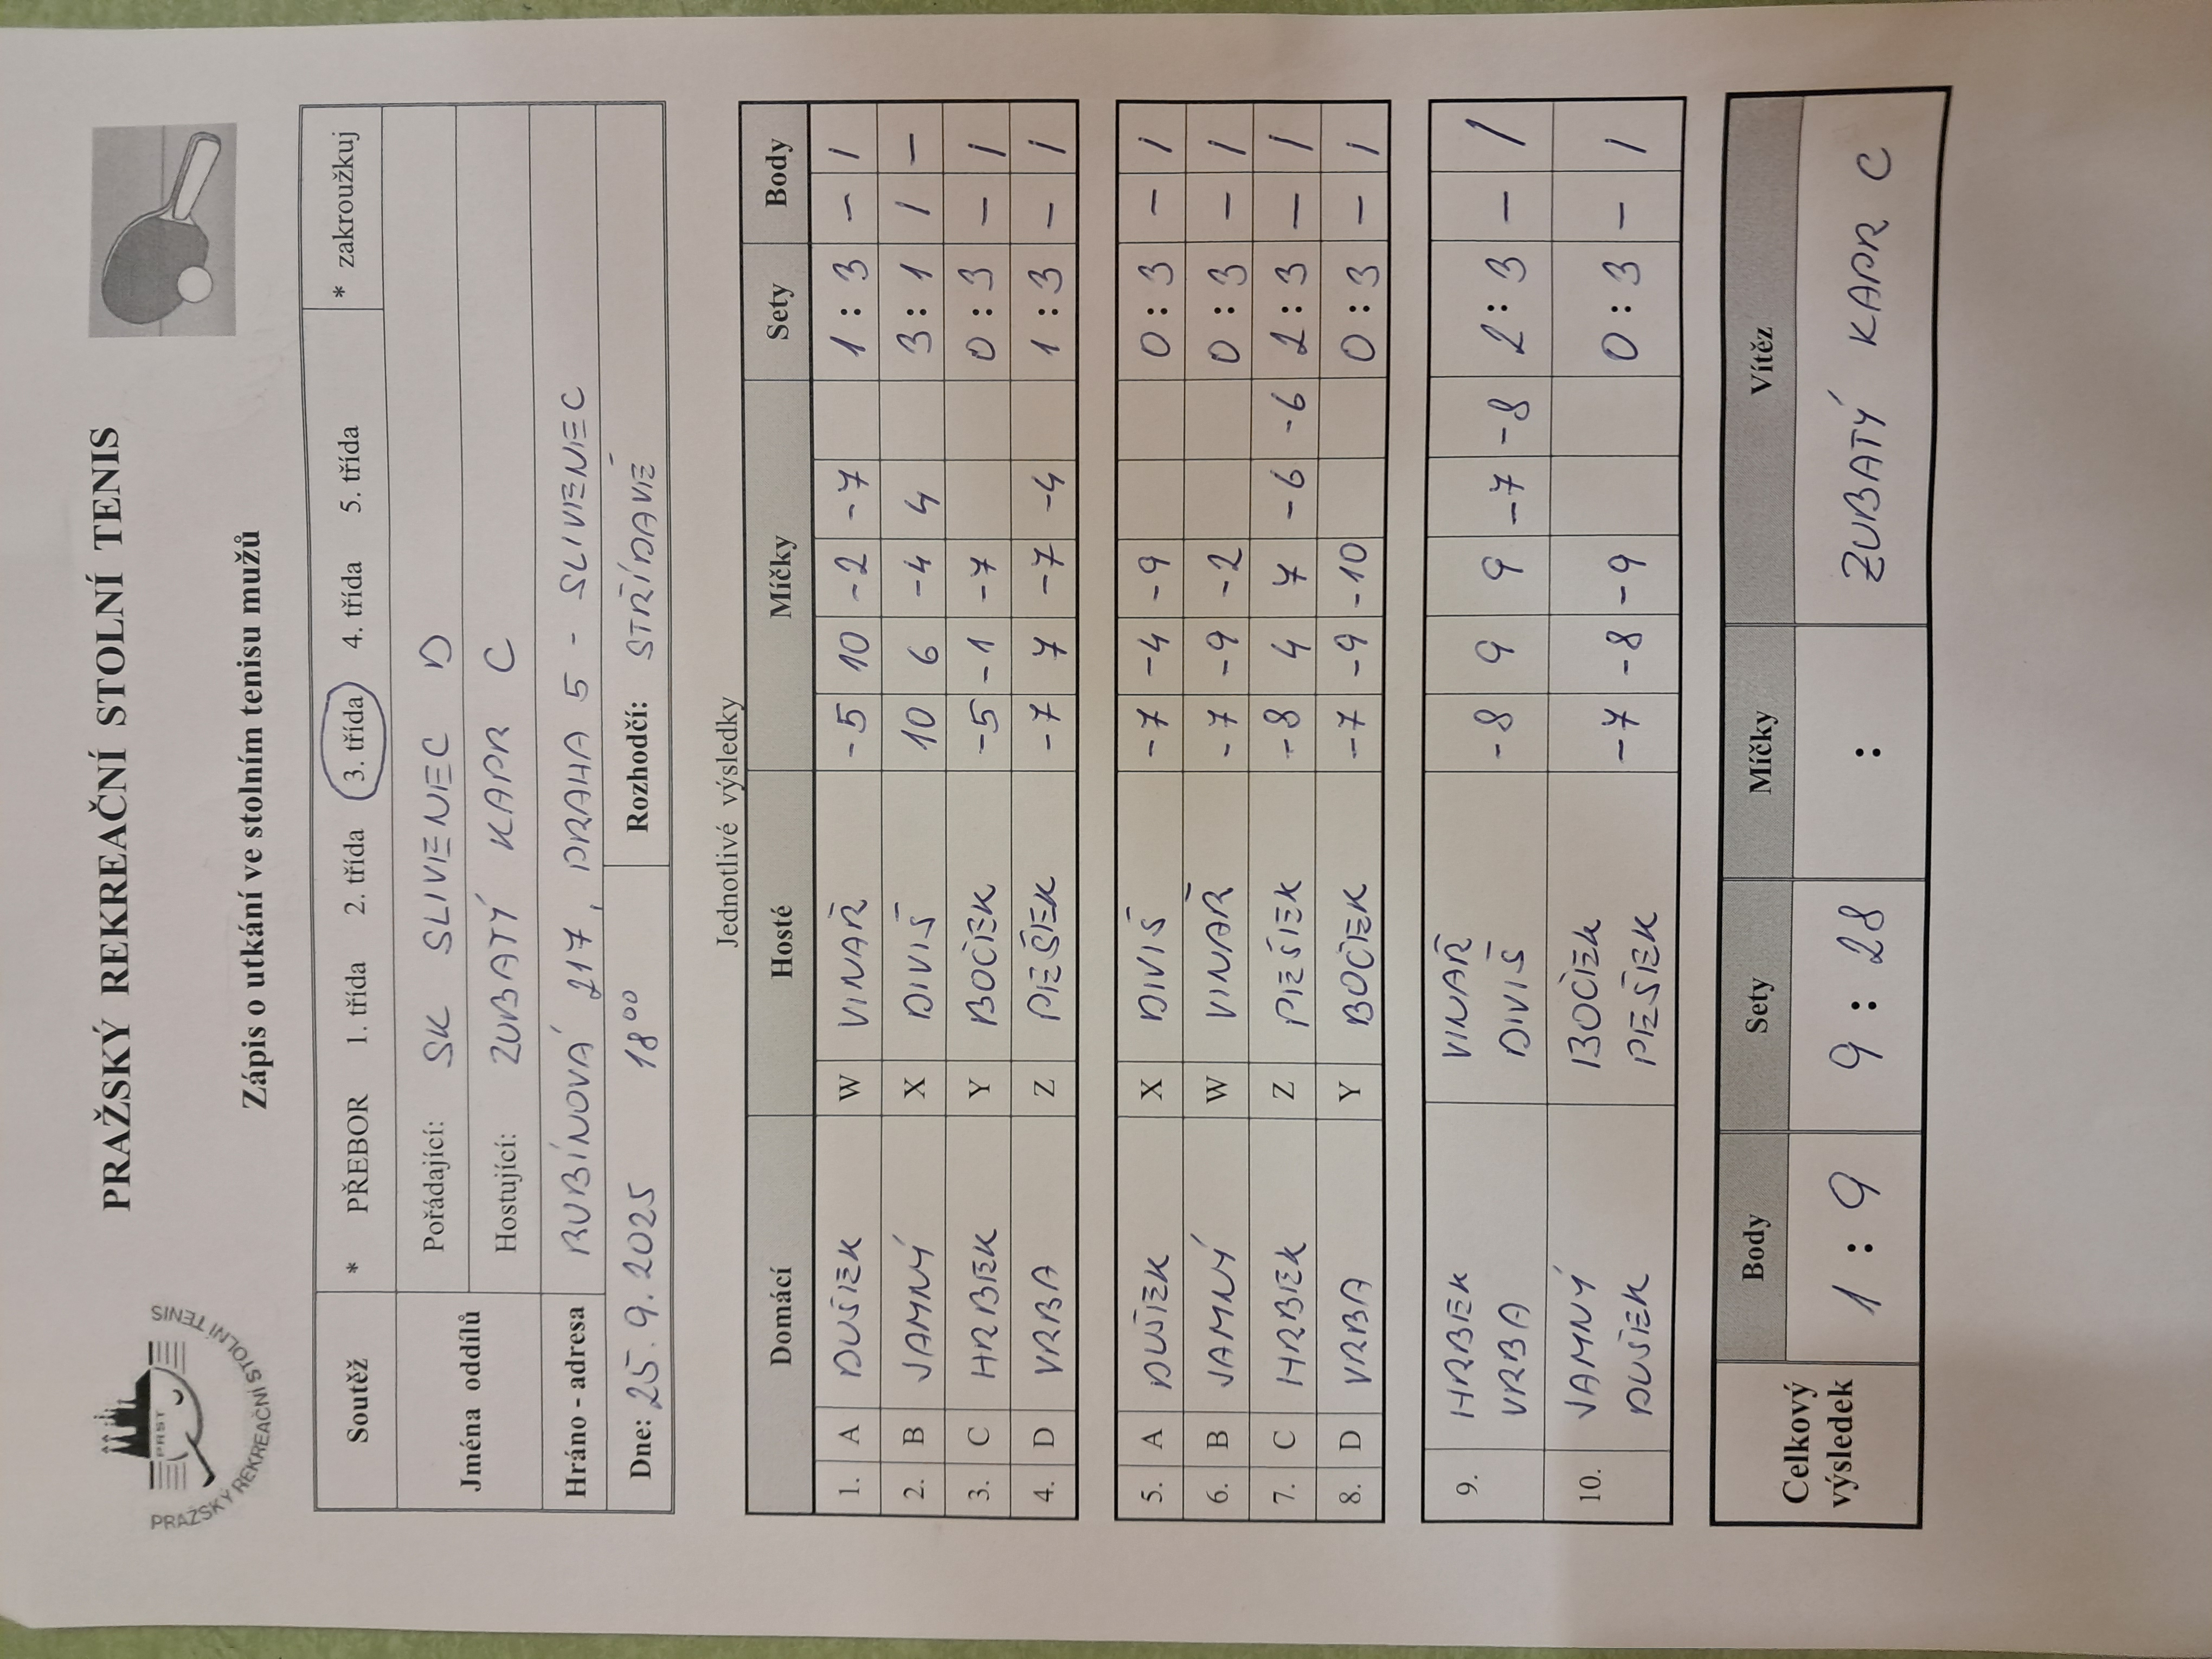 PRAŽSKÝ REKREAČNÍ STOLNÍ TENIS
PRST
PRAŽSKÝ REKREAČNÍ STOLNÍ TENIS
Zápis o utkání ve stolním tenisu mužů
Soutěž * PŘEBOR 1. třída 2. třída 3. třída 4. třída 5. třída * zakroužkuj
Jména oddílů Pořádající: SK SLIVENEC D
Hostující: ZUBATÝ KAPR C
Hráno - adresa RUBÍNOVÁ 217, PRAHA 5 - SLIVENEC
Dne: 25.9.2025 18⁰⁰ Rozhodčí: STŘÍDAVĚ
Jednotlivé výsledky
Domácí Hosté Míčky Sety Body
1. A DUŠEK W VINAŘ -5 10 -2 -7 1 : 3 - 1
2. B JAMNÝ X DIVIŠ 10 6 -4 4 3 : 1 1 -
3. C HRBEK Y BOČEK -5 -1 -7 0 : 3 - 1
4. D VRBA Z PEŠEK -7 7 -7 -4 1 : 3 - 1
5. A DUŠEK X DIVIŠ -7 -4 -9 0 : 3 - 1
6. B JAMNÝ W VINAŘ -7 -9 -2 0 : 3 - 1
7. C HRBEK Z PEŠEK -8 4 7 -6 -6 2 : 3 - 1
8. D VRBA Y BOČEK -7 -9 -10 0 : 3 - 1
9. HRBEK VINAŘ -8 9 9 -7 -8 2 : 3 - 1
VRBA DIVIŠ
10. JAMNÝ BOČEK -7 -8 -9 0 : 3 - 1
DUŠEK PEŠEK
Celkový výsledek Body Sety Míčky Vítěz
1 : 9 9 : 28 : ZUBATÝ KAPR C